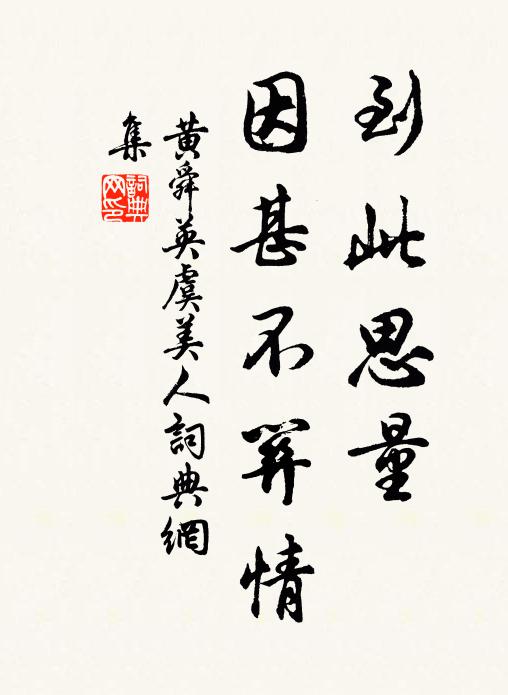 到此思量
因甚不關情
黃舜英虞美人詞典網
集
詞典
网印